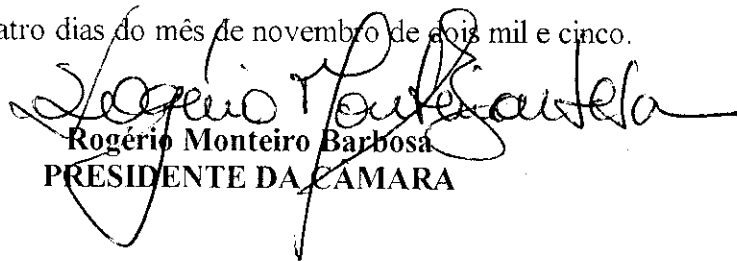 atro dias do mês de novembro de dois mil e cinco.
Rogério Monteiro
Rogério Monteiro Barbosa
PRESIDENTE DA CÂMARA